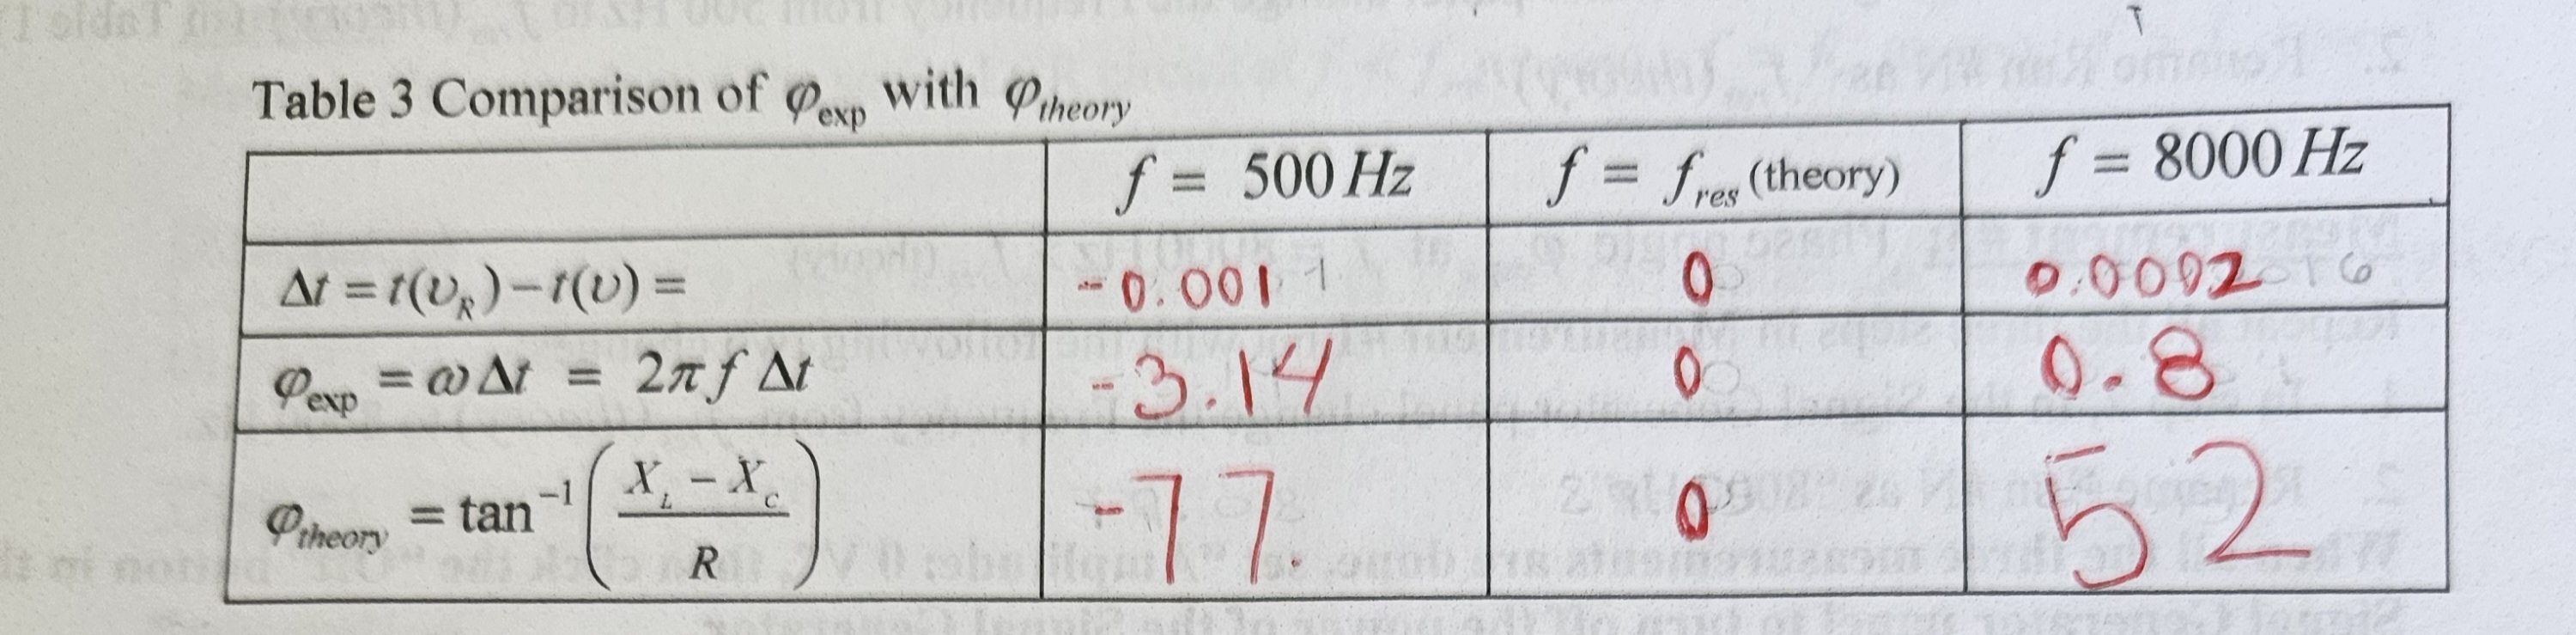 Table 3 Comparison of φexp with φtheory
f = 500 Hz f = fres (theory) f = 8000 Hz
Δt = t(υR) – t(υ) = -0.001 0 0.0002
φexp = ω Δt = 2π f Δt -3.14 0 0.8
φtheory = tan⁻¹((XL – XC) / R) -77. 0 52